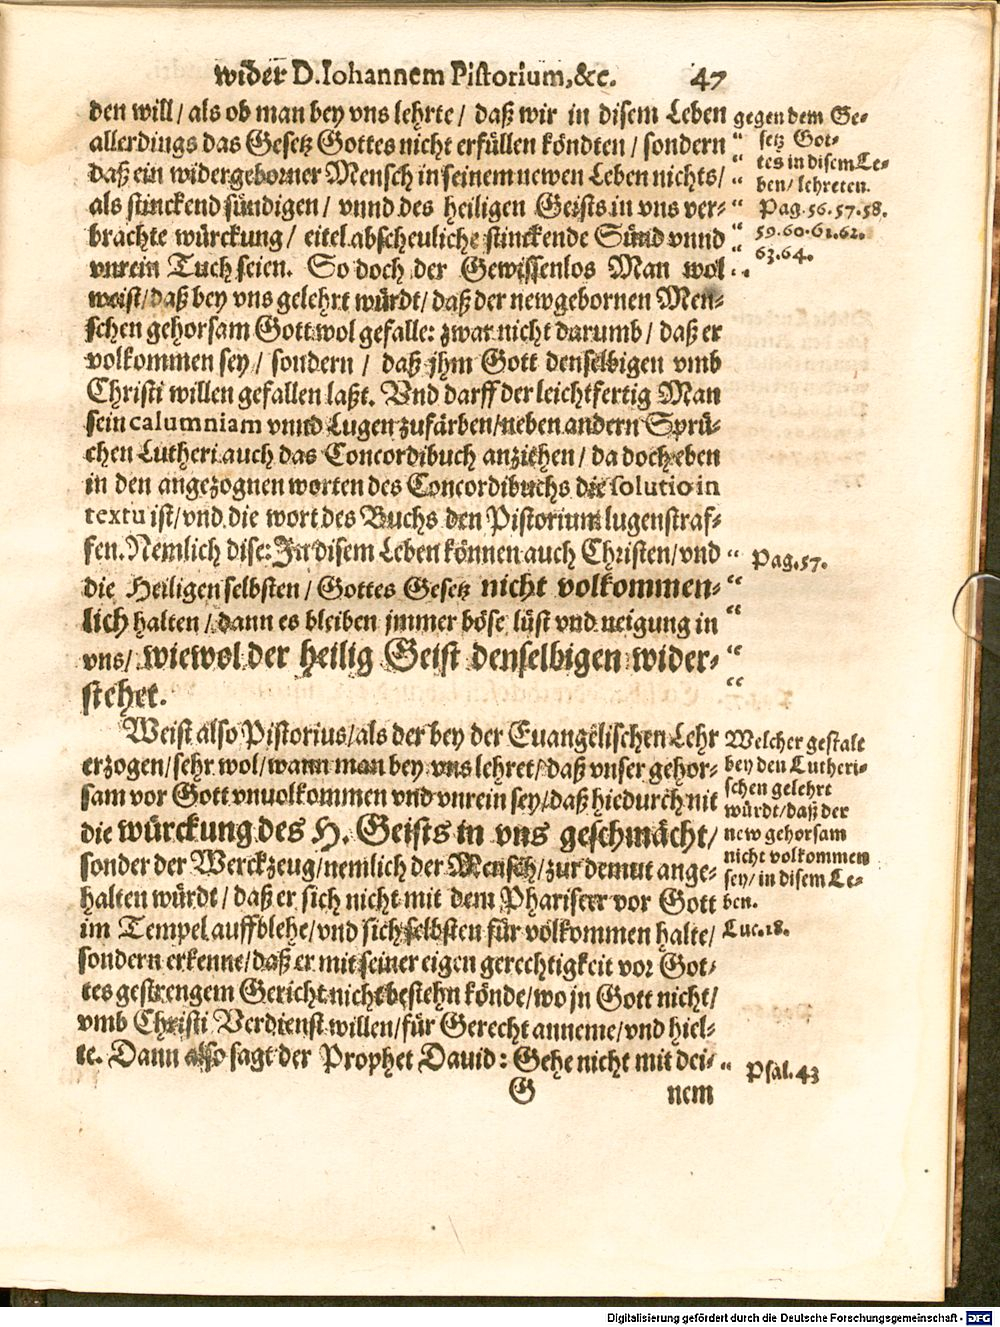 wider D. Iohannem Pistorium, &c. 47
den will / als ob man bey vns lehrte / daß wir in disem Leben
allerdings das Gesetz Gottes nicht erfüllen köndten / sondern
daß ein widergeborner Mensch in seinem newen Leben nichts /
als stinckend sündigen / vnnd des heiligen Geists in vns ver-
brachte würckung / eitel abscheuliche stinckende Sünd vnnd
vnrein Tuch seien. So doch der Gewissenlos Man wol
weist / daß bey vns gelehrt würdt / daß der newgebornen Men-
schen gehorsam Gott wol gefalle: zwar nicht darumb / daß er
volkommen sey / sondern / daß jhm Gott denselbigen vmb
Christi willen gefallen laßt. Vnd darff der leichtfertig Man
sein calumniam vnnd Lugen zufärben / neben andern Sprü-
chen Lutheri auch das Concordibuch anziehen / da doch eben
in den angezognen worten des Concordibuchs die solutio in
textu ist / vnd die wort des Buchs den Pistorium lugenstraf-
fen. Nemlich dise: In disem Leben können auch Christen / vnd
die Heiligen selbsten / Gottes Gesetz nicht volkommen-
lich halten / dann es bleiben jmmer böse lüst vnd neigung in
vns / wiewol der heilig Geist denselbigen wider-
stehet.
Weist also Pistorius / als der bey der Euangelischen Lehr
erzogen / sehr wol / wann man bey vns lehret / daß vnser gehor-
sam vor Gott vnuolkommen vnd vnrein sey / daß hiedurch nit
die würckung des H. Geists in vns geschmächt /
sonder der Werckzeug / nemlich der Mensch / zur demut ange-
halten würdt / daß er sich nicht mit dem Phariseer vor Gott
im Tempel auffblehe / vnd sich selbsten für volkommen halte /
sondern erkenne / daß er mit seiner eigen gerechtigkeit vor Got-
tes gestrengem Gericht nicht bestehn könde / wo jn Gott nicht /
vmb Christi Verdienst willen / für Gerecht anneme / vnd hiel-
te. Dann also sagt der Prophet Dauid: Gehe nicht mit dei-
G nem
gegen dem Ge-
setz Got-
tes in disem Le-
ben / lehreten.
Pag. 56. 57. 58.
59. 60. 61. 62.
63. 64.
Pag. 57.
Welcher gestalt
bey den Lutheri-
schen gelehrt
würdt / daß der
new gehorsam
nicht volkommen
sey / in disem Le-
ben.
Luc. 18.
Psal. 43
Digitalisierung gefördert durch die Deutsche Forschungsgemeinschaft - DFG